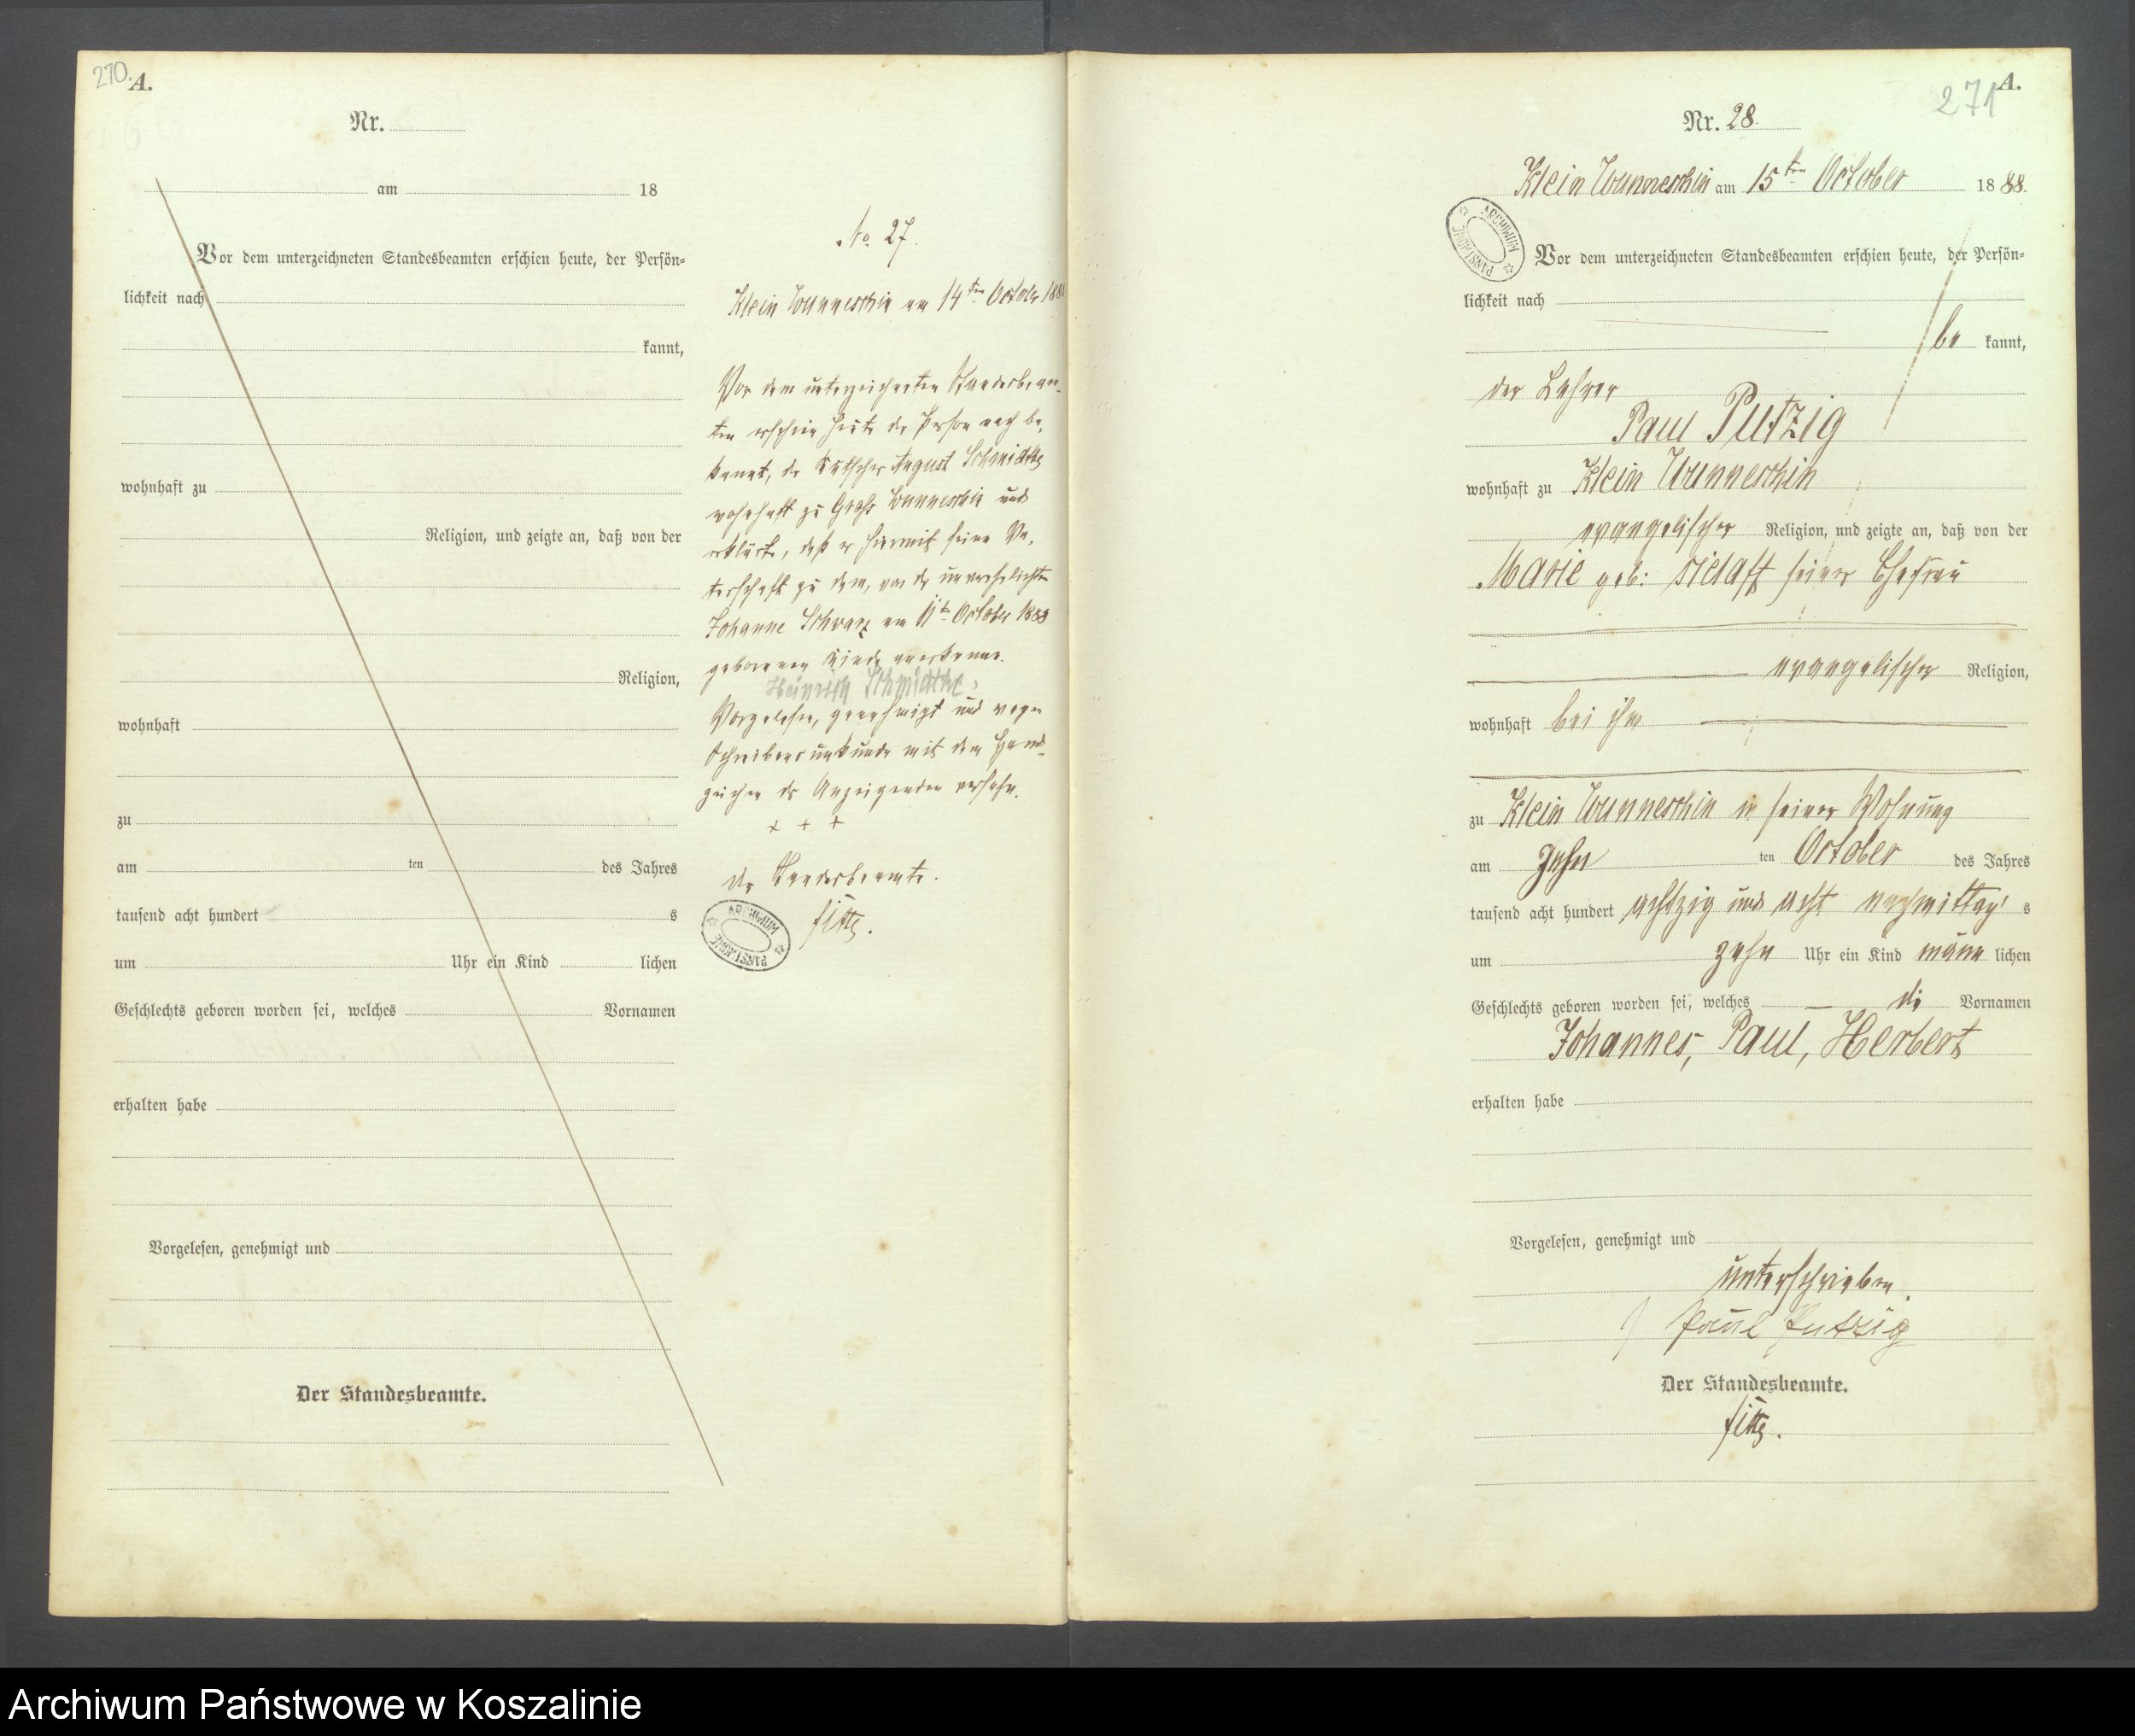 270.
A.
Nr.
am 18
Vor dem unterzeichneten Standesbeamten erschien heute, der Persön=
lichkeit nach
kannt,
wohnhaft zu
Religion, und zeigte an, daß von der
Religion,
wohnhaft
zu
am ten des Jahres
tausend acht hundert s
um Uhr ein Kind lichen
Geschlechts geboren worden sei, welches Vornamen
erhalten habe
Vorgelesen, genehmigt und
Der Standesbeamte.
No 27.
Klein Wunneschin am 14ten October 188
Vor dem unterzeichneten Standesbeam-
ten erschien heute der Person nach be-
kannt, der Kutscher August Schmidtke
wohnhaft zu Groß Wunneschin und
erklärte, daß er hiermit seine Va-
terschaft zu dem, von der unverehelichten
Johanne Schwarz am 11t October 1888
geborenen Kinde anerkenne.
Heinrich Schmidtke
Vorgelesen, genehmigt und wegen
Schreibensunkunde mit dem Hand-
zeichen des Anzeigenden versehn.
+ + +
Der Standesbeamte.
ARCHIWUM PAŃSTWOWE
271
A.
Nr. 28
Klein Wunneschin am 15ten October 1888.
ARCHIWUM PAŃSTWOWE
Vor dem unterzeichneten Standesbeamten erschien heute, der Persön=
lichkeit nach
be kannt,
der Lehrer
Paul Putzig
wohnhaft zu Klein Wunneschin
evangelischer Religion, und zeigte an, daß von der
Marie geb: Sielaff seiner Ehefrau
evangelischer Religion,
wohnhaft bei ihm
zu Klein Wunneschin in seiner Wohnung
am Zehn ten October des Jahres
tausend acht hundert achtzig und acht nachmittag' s
um zehn Uhr ein Kind männ lichen
Geschlechts geboren worden sei, welches — die Vornamen
Johannes, Paul, Herbert
erhalten habe
Vorgelesen, genehmigt und
unterschrieben.
Paul Putzig
Der Standesbeamte.
Archiwum Państwowe w Koszalinie